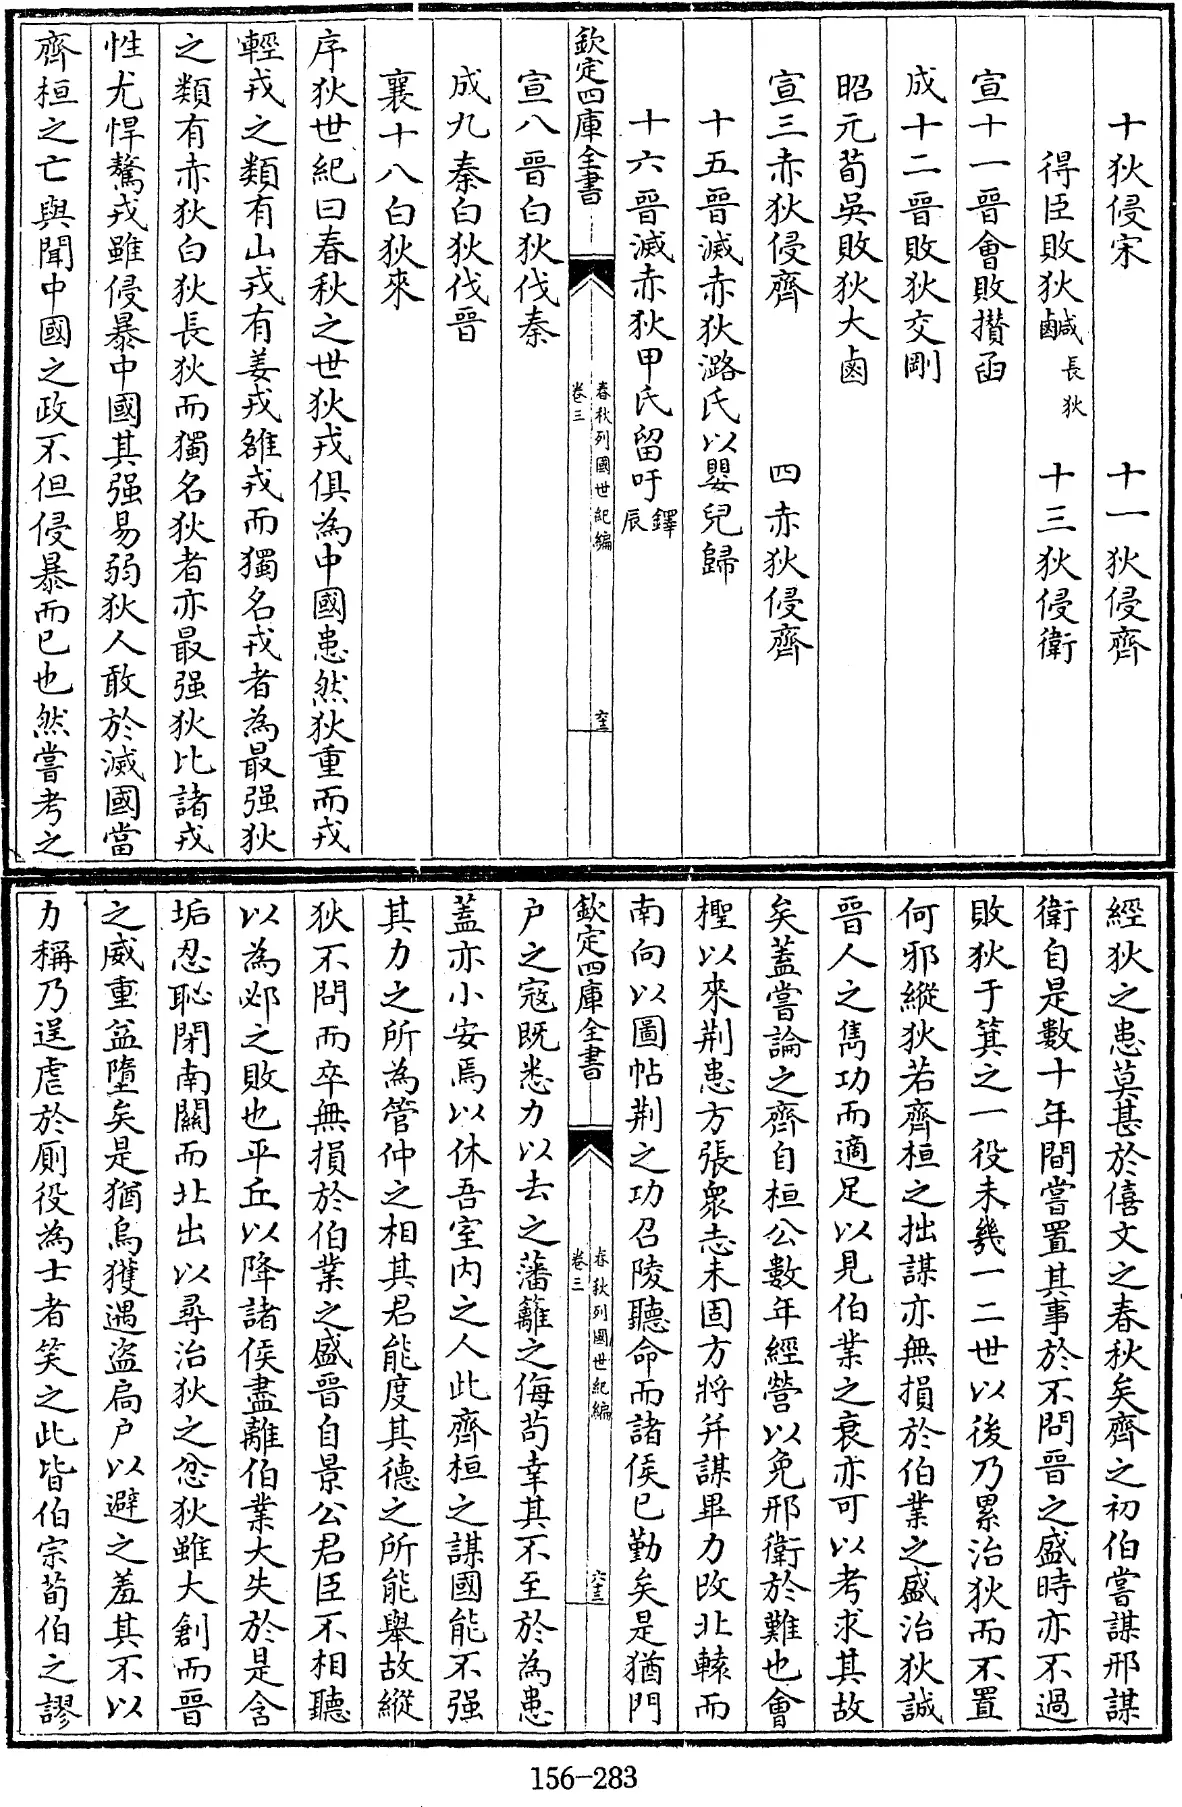 十狄侵宋　十一狄侵齊
得臣敗狄鹹長狄　十三狄侵衛
宣十一晉會敗攢函
成十二晉敗狄交剛
昭元荀吳敗狄大鹵
宣三赤狄侵齊　四赤狄侵齊
十五晉滅赤狄潞氏以嬰兒歸
十六晉滅赤狄甲氏留吁鐸辰
欽定四庫全書　春秋列國世紀編卷三　六十三
宣八晉白狄伐秦
成九秦白狄伐晉
襄十八白狄來
序狄世紀曰春秋之世狄戎俱為中國患然狄重而戎
輕戎之類有山戎有姜戎雒戎而獨名戎者為最强狄
之類有赤狄白狄長狄而獨名狄者亦最强狄比諸戎
性尤悍驁戎雖侵暴中國其强易弱狄人敢於滅國當
齊桓之亡與聞中國之政不但侵暴而已也然嘗考之
經狄之患莫甚於僖文之春秋矣齊之初伯嘗謀邢謀
衛自是數十年間嘗置其事於不問晉之盛時亦不過
敗狄于箕之一役未幾一二世以後乃累治狄而不置
何邪縱狄若齊桓之拙謀亦無損於伯業之盛治狄誠
晉人之雋功而適足以見伯業之衰亦可以考求其故
矣蓋嘗論之齊自桓公數年經營以免邢衛於難也會
檉以來荆患方張衆志未固方將并謀畢力改北轅而
南向以圖帖荆之功召陵聽命而諸侯已勤矣是猶門
欽定四庫全書　春秋列國世紀編卷三　六十三
户之寇既悉力以去之藩籬之侮苟幸其不至於為患
蓋亦小安焉以休吾室内之人此齊桓之謀國能不强
其力之所為管仲之相其君能度其德之所能舉故縱
狄不問而卒無損於伯業之盛晉自景公君臣不相聽
以為邲之敗也平丘以降諸侯盡離伯業大失於是含
垢忍恥閉南關而北出以尋治狄之忿狄雖大創而晉
之威重益墮矣是猶烏獲遇盗扃户以避之羞其不以
力稱乃逞虐於厠役為士者笑之此皆伯宗荀伯之謬
156-283